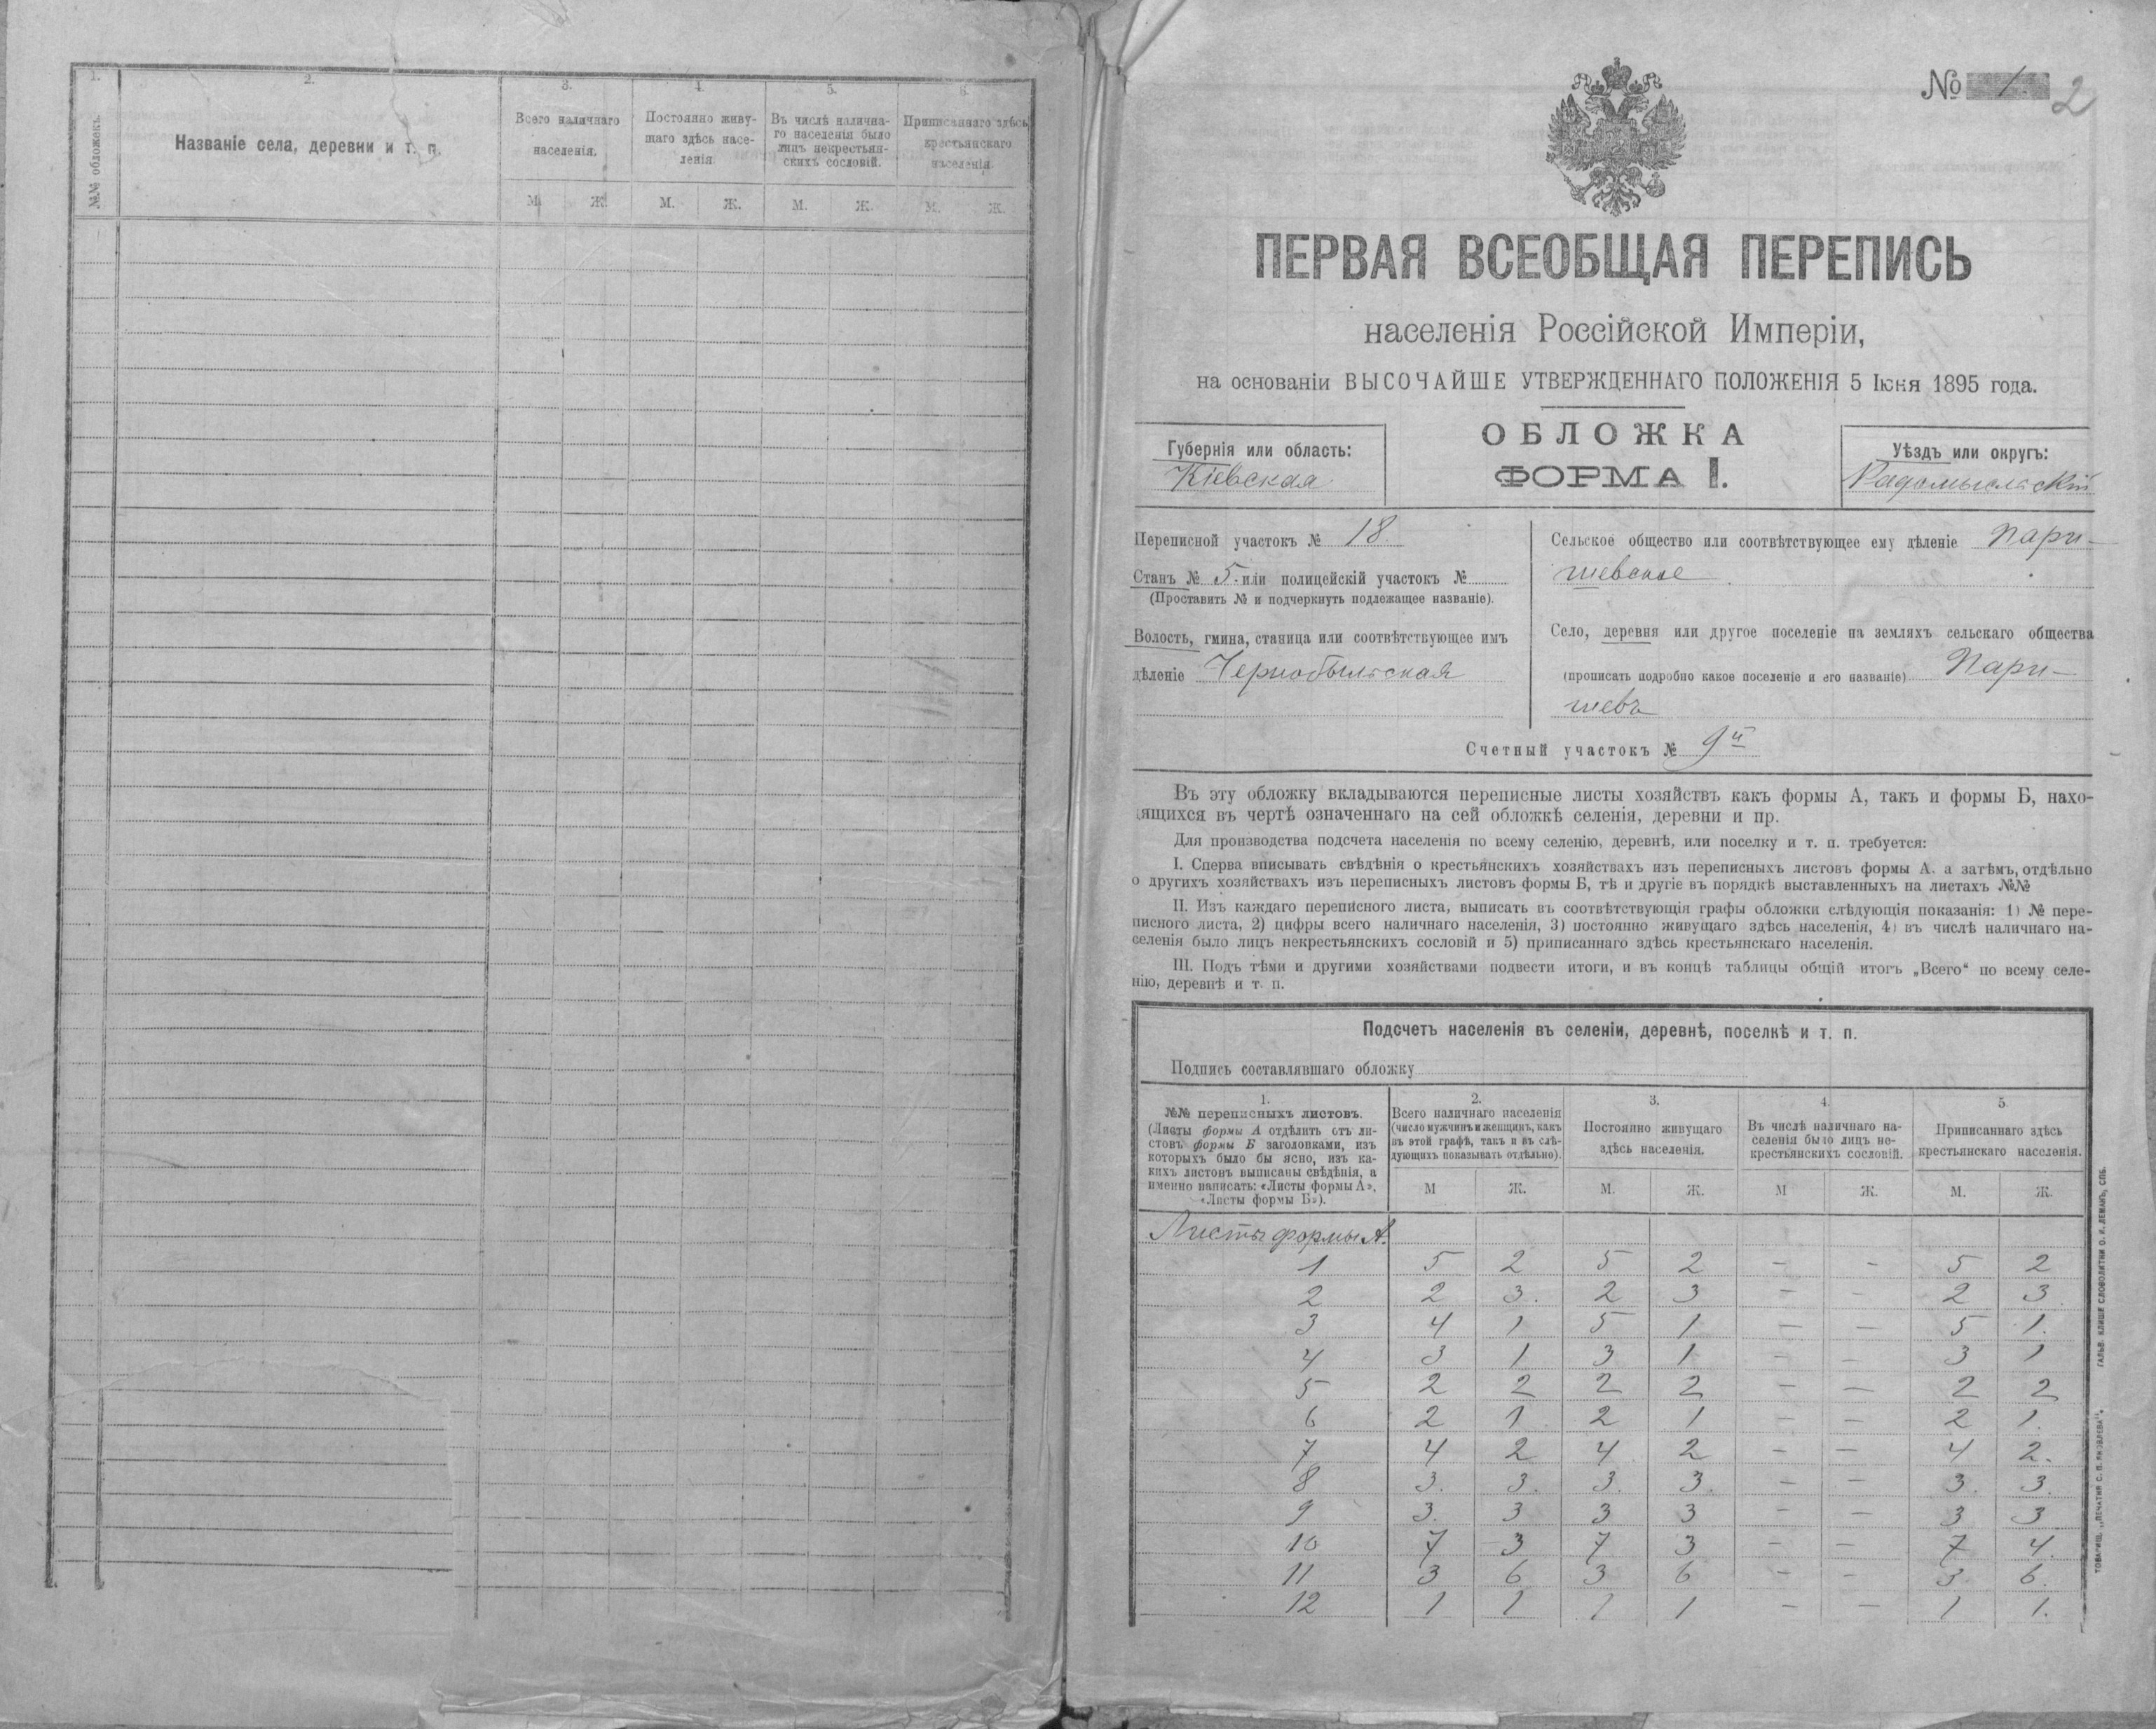 1.
2.
3.
4.
5.
6.
№№ обложекъ.
Названіе села, деревни и т. п.
Всего наличнаго
населенія.
Постоянно живу-
щаго здѣсь насе-
ленія.
Въ числѣ налична-
го населенія было
лицъ некрестьян-
скихъ сословій.
Приписаннаго здѣсь
крестьянскаго
населенія.
М. Ж. М. Ж. М. Ж. М. Ж.
№ 1. 2
ПЕРВАЯ ВСЕОБЩАЯ ПЕРЕПИСЬ
населенія Россійской Имперіи,
на основаніи ВЫСОЧАЙШЕ УТВЕРЖДЕННАГО ПОЛОЖЕНІЯ 5 Іюня 1895 года.
ОБЛОЖКА
ФОРМА I.
Губернія или область:
Кіевская
Уѣздъ или округъ:
Радомысльскій
Переписной участокъ № 18.
Станъ № 5. или полицейскій участокъ №
(Проставить № и подчеркнуть подлежащее названіе).
Волость, гмина, станица или соотвѣтствующее имъ
дѣленіе Чернобыльская
Сельское общество или соотвѣтствующее ему дѣленіе Пари-
шевское
Село, деревня или другое поселеніе на земляхъ сельскаго общества
(прописать подробно какое поселеніе и его названіе) Пари-
шевъ
Счетный участокъ № 9й
Въ эту обложку вкладываются переписные листы хозяйствъ какъ формы А, такъ и формы Б, нахо-
дящихся въ чертѣ означеннаго на сей обложкѣ селенія, деревни и пр.
Для производства подсчета населенія по всему селенію, деревнѣ, или поселку и т. п. требуется:
I. Сперва вписывать свѣдѣнія о крестьянскихъ хозяйствахъ изъ переписныхъ листовъ формы А. а затѣмъ, отдѣльно
о другихъ хозяйствахъ изъ переписныхъ листовъ формы Б, тѣ и другіе въ порядкѣ выставленныхъ на листахъ №№
II. Изъ каждаго переписного листа, выписать въ соотвѣтствующія графы обложки слѣдующія показанія: 1) № пере-
писного листа, 2) цифры всего наличнаго населенія, 3) постоянно живущаго здѣсь населенія, 4) въ числѣ наличнаго на-
селенія было лицъ некрестьянскихъ сословій и 5) приписаннаго здѣсь крестьянскаго населенія.
III. Подъ тѣми и другими хозяйствами подвести итоги, и въ концѣ таблицы общій итогъ „Всего“ по всему селе-
нію, деревнѣ и т. п.
Подсчетъ населенія въ селеніи, деревнѣ, поселкѣ и т. п.
Подпись составлявшаго обложку
1.
№№ переписныхъ листовъ.
(Листы формы А отдѣлить отъ ли-
стовъ формы Б заголовками, изъ
которыхъ было бы ясно, изъ ка-
кихъ листовъ выписаны свѣдѣнія, а
именно написать: «Листы формы А»,
«Листы формы Б»).
2.
Всего наличнаго населенія
(число мужчинъ и женщинъ, какъ
въ этой графѣ, такъ и въ слѣ-
дующихъ показывать отдѣльно).
3.
Постоянно живущаго
здѣсь населенія.
4.
Въ числѣ наличнаго на-
селенія было лицъ не-
крестьянскихъ сословій.
5
Приписаннаго здѣсь
крестьянскаго населенія.
М Ж. М. Ж. М Ж. М. Ж.
Листы формы А.
1 5 2 5 2 - - 5 2
2 2 3. 2 3 - - 2 3.
3 4 1 5 1 - - 5 1.
4 3 1 3 1 - - 3 1
5 2 2 2 2 - - 2 2
6 2 1 2 1 - - 2 1.
7 4 2 4 2 - - 4 2.
8 3. 3. 3. 3. - - 3. 3.
9 3. 3 3 3 - - 3 3
10 7 3 7 3 - - 7 4.
11 3 6 3 6 - - 3. 6.
12 1 1 1 1 - - 1 1.
ТОВАРИЩ. „ПЕЧАТНЯ С. П. ЯКОВЛЕВА“. ГАЛЬВ. КЛИШЕ СЛОВОЛИТНИ О. И. ЛЕМАНЪ, СПБ.